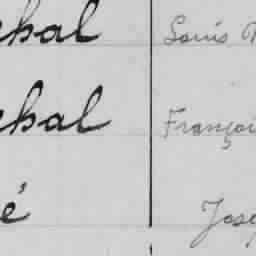 ehal Louis
ehal Françoi
é Jose